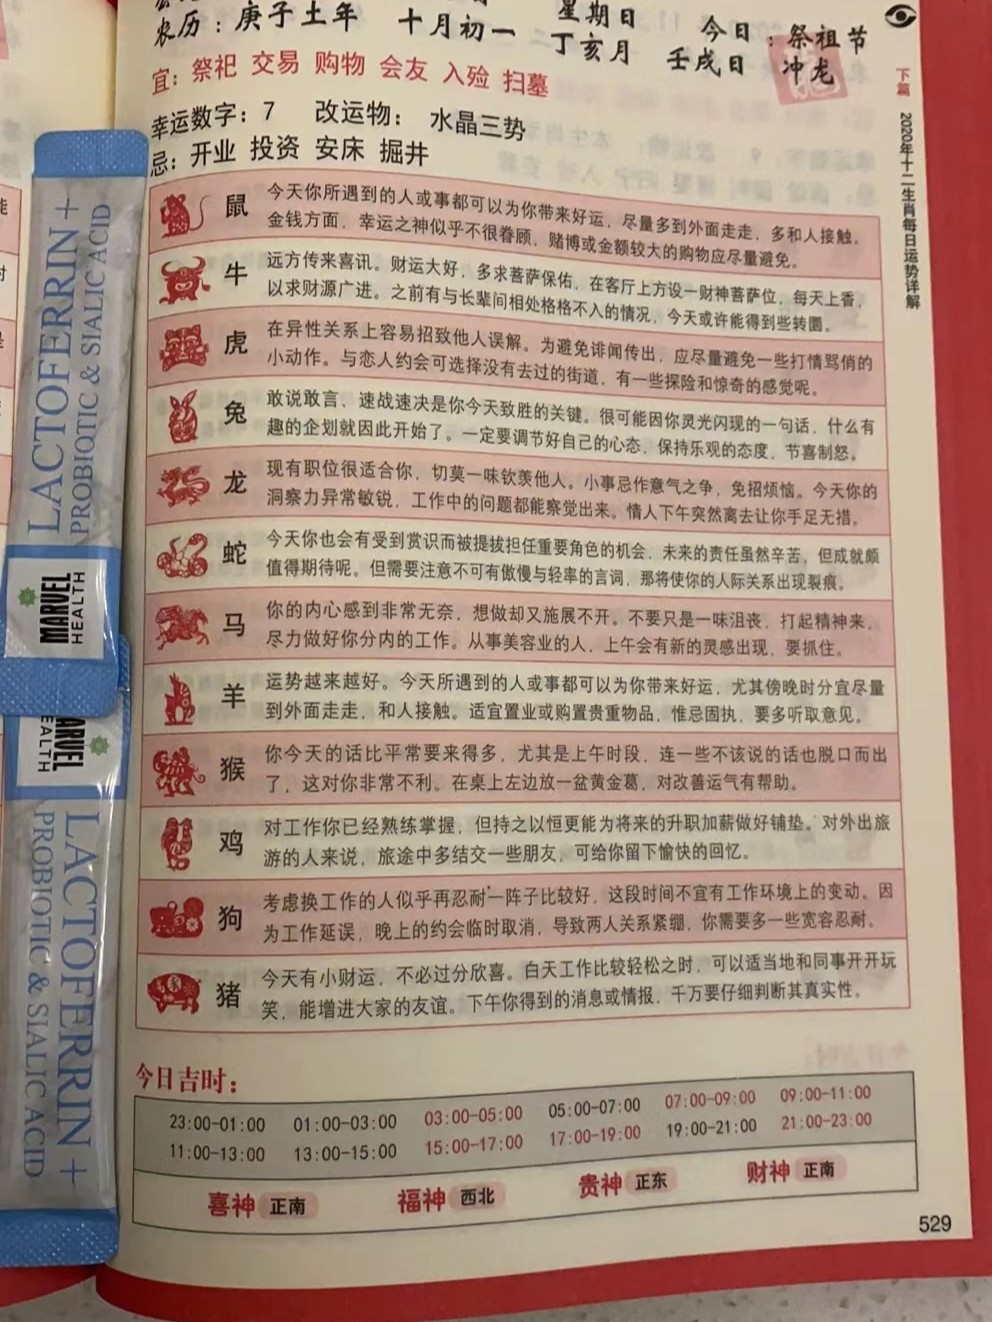 星期日
农历：庚子土年 十月初一 丁亥月 壬戌日
今日：祭祖节
冲龙
宜：祭祀 交易 购物 会友 入殓 扫墓
幸运数字：7 改运物：水晶三势
忌：开业 投资 安床 掘井
鼠
今天你所遇到的人或事都可以为你带来好运，尽量多到外面走走，多和人接触。
金钱方面，幸运之神似乎不很眷顾，赌博或金额较大的购物应尽量避免。
牛
远方传来喜讯。财运大好，多求菩萨保佑，在客厅上方设一财神菩萨位，每天上香，
以求财源广进。之前有与长辈间相处格格不入的情况，今天或许能得到些转圜。
虎
在异性关系上容易招致他人误解。为避免诽闻传出，应尽量避免一些打情骂俏的
小动作。与恋人约会可选择没有去过的街道，有一些探险和惊奇的感觉呢。
兔
敢说敢言、速战速决是你今天致胜的关键。很可能因你灵光闪现的一句话，什么有
趣的企划就因此开始了。一定要调节好自己的心态，保持乐观的态度，节喜制怒。
龙
现有职位很适合你，切莫一味钦羡他人。小事忌作意气之争，免招烦恼。今天你的
洞察力异常敏锐，工作中的问题都能察觉出来。情人下午突然离去让你手足无措。
蛇
今天你也会有受到赏识而被提拔担任重要角色的机会，未来的责任虽然辛苦，但成就颇
值得期待呢。但需要注意不可有傲慢与轻率的言词，那将使你的人际关系出现裂痕。
马
你的内心感到非常无奈，想做却又施展不开。不要只是一味沮丧，打起精神来，
尽力做好你分内的工作。从事美容业的人，上午会有新的灵感出现，要抓住。
羊
运势越来越好。今天所遇到的人或事都可以为你带来好运，尤其傍晚时分宜尽量
到外面走走，和人接触。适宜置业或购置贵重物品，惟忌固执，要多听取意见。
猴
你今天的话比平常要来得多，尤其是上午时段，连一些不该说的话也脱口而出
了，这对你非常不利。在桌上左边放一盆黄金葛，对改善运气有帮助。
鸡
对工作你已经熟练掌握，但持之以恒更能为将来的升职加薪做好铺垫。对外出旅
游的人来说，旅途中多结交一些朋友，可给你留下愉快的回忆。
狗
考虑换工作的人似乎再忍耐一阵子比较好，这段时间不宜有工作环境上的变动。因
为工作延误，晚上的约会临时取消，导致两人关系紧绷，你需要多一些宽容忍耐。
猪
今天有小财运，不必过分欣喜。白天工作比较轻松之时，可以适当地和同事开开玩
笑，能增进大家的友谊。下午你得到的消息或情报，千万要仔细判断其真实性。
今日吉时：
23:00-01:00 01:00-03:00 03:00-05:00 05:00-07:00 07:00-09:00 09:00-11:00
11:00-13:00 13:00-15:00 15:00-17:00 17:00-19:00 19:00-21:00 21:00-23:00
喜神 正南 福神 西北 贵神 正东 财神 正南
529
下篇
2020年十二生肖每日运势详解
LACTOFERRIN +
PROBIOTIC & SIALIC ACID
MARVEL
HEALTH
LACTOFERRIN +
PROBIOTIC & SIALIC ACID